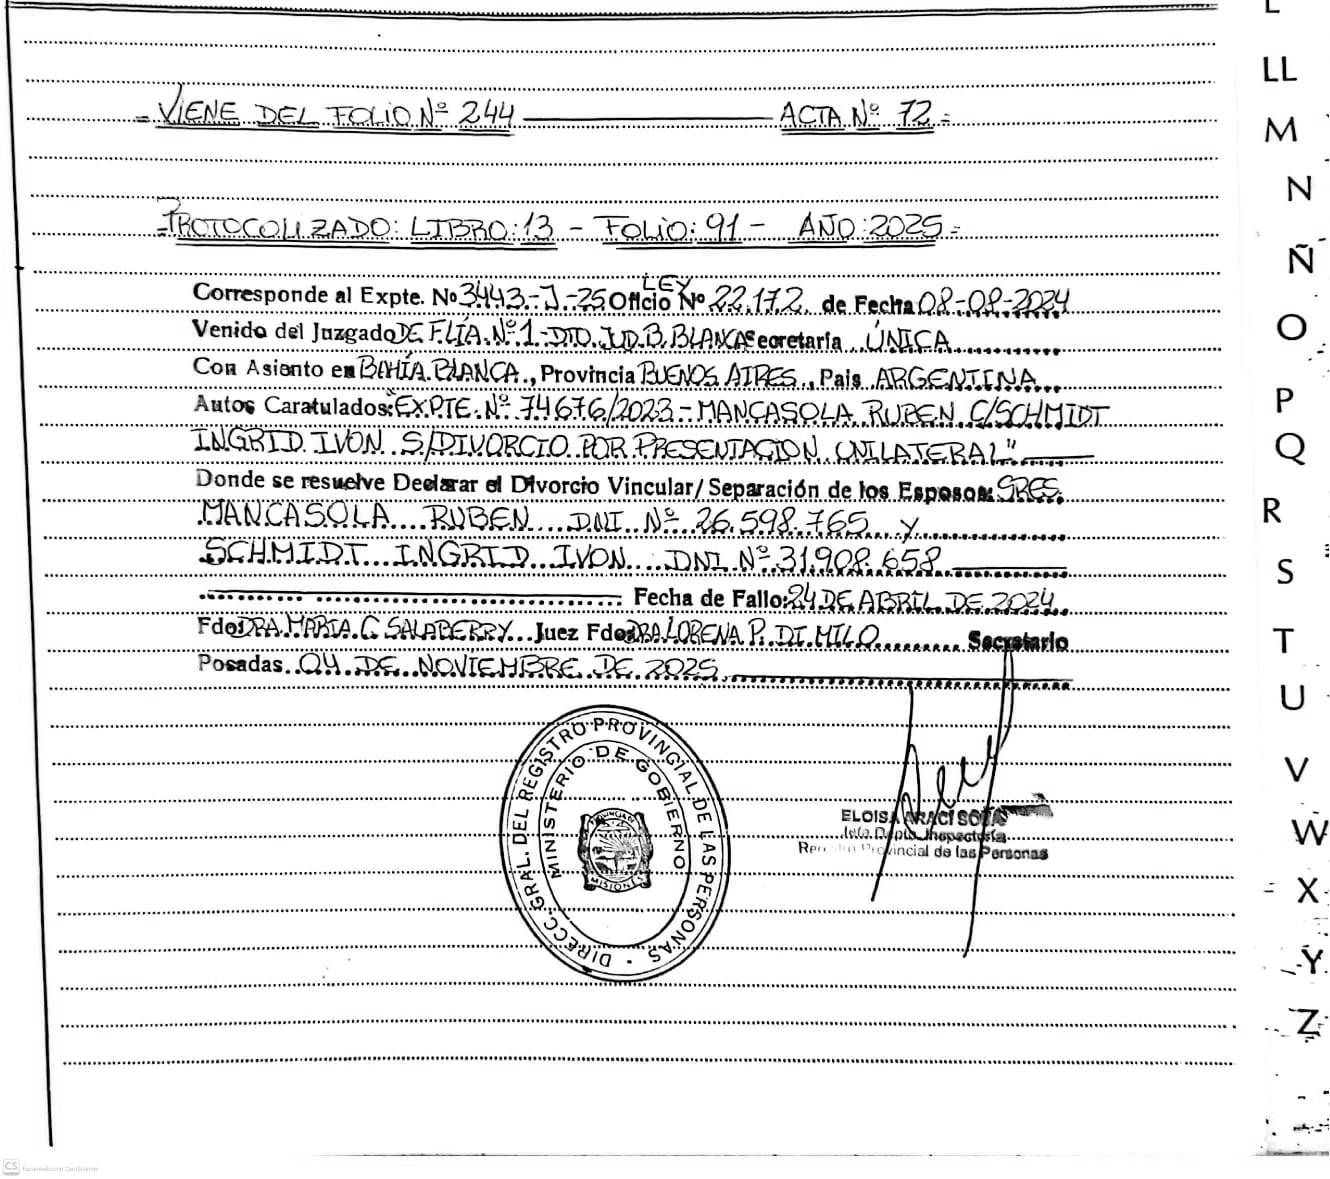 VIENE DEL FOLIO Nº 244 ACTA Nº 72
PROTOCOLIZADO: LIBRO: 13 - FOLIO: 91 - AÑO: 2025
LEY
Corresponde al Expte. Nº 3443-J-25 Oficio Nº 22.172 de Fecha 08-08-2024
Venido del Juzgado DE FLÍA. Nº 1 - DTO. JUD. B. BLANCA Secretaría ÚNICA
Con Asiento en BAHÍA BLANCA, Provincia BUENOS AIRES, Pais ARGENTINA
Autos Caratulados: "EXPTE. Nº 74676/2023 - MANCASOLA RUBEN C/SCHMIDT
INGRID IVON S/DIVORCIO POR PRESENTACION UNILATERAL"
Donde se resuelve Declarar el Divorcio Vincular/ Separación de los Esposos: SRES.
MANCASOLA RUBEN DNI Nº 26.598.765 Y
SCHMIDT INGRID IVON DNI Nº 31.908.658
Fecha de Fallo: 24 DE ABRIL DE 2024
Fdo: DRA. MARIA C. SALABERRY Juez Fdo: DRA. LORENA P. DI MILO Secretario
Posadas 04 DE NOVIEMBRE DE 2025
DIRECC. GRAL. DEL REGISTRO PROVINCIAL DE LAS PERSONAS
MINISTERIO DE GOBIERNO
MISIONES
ELOISA ARACI SOSA
Jefe Dpto. Inspectoría
Registro Provincial de las Personas
L
LL
M
N
Ñ
O
P
Q
R
S
T
U
V
W
X
Y
Z
CS Escaneado con CamScanner